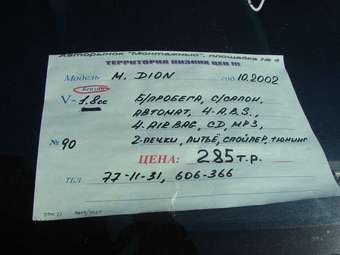 Авторынок "Монтажный", площадка № 4
ТЕРРИТОРИЯ НИЗКИХ ЦЕН !!!
Модель M. DION год 10.2002
V- 1.8cc Б/ПРОБЕГА, С/САЛОН,
АВТОМАТ, 4-A.B.S.,
4. AIR BAG, CD, MP3,
№ 90 2-ПЕЧКИ, ЛИТЬЁ, СПОЙЛЕР, ТЮНИНГ
ЦЕНА: 285 т.р.
ТЕЛ 77-11-31, 606-366